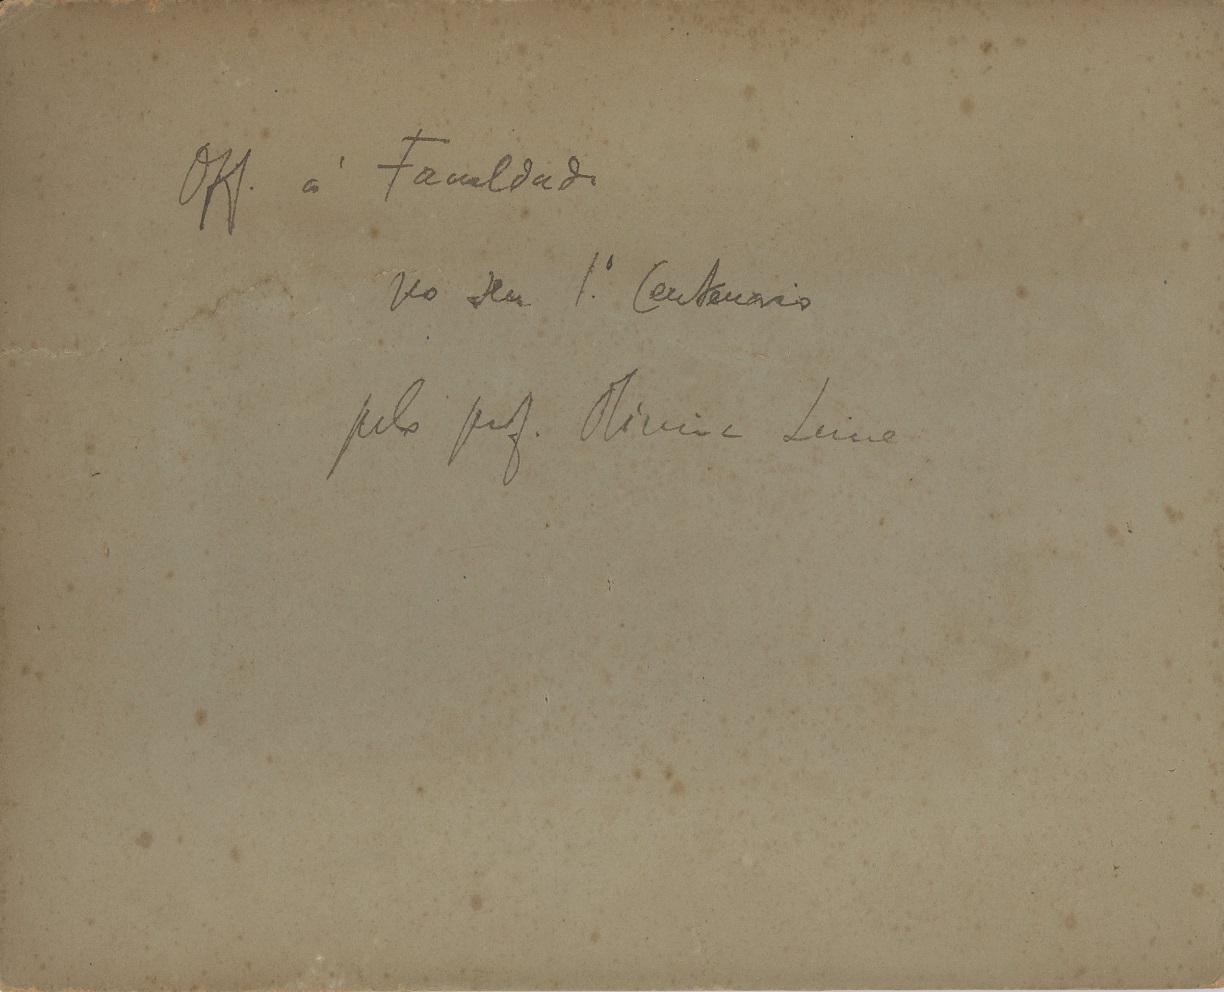 Off. á Faculdade
no seu 1.º Centenario
pelo prof. Oliveira Lima